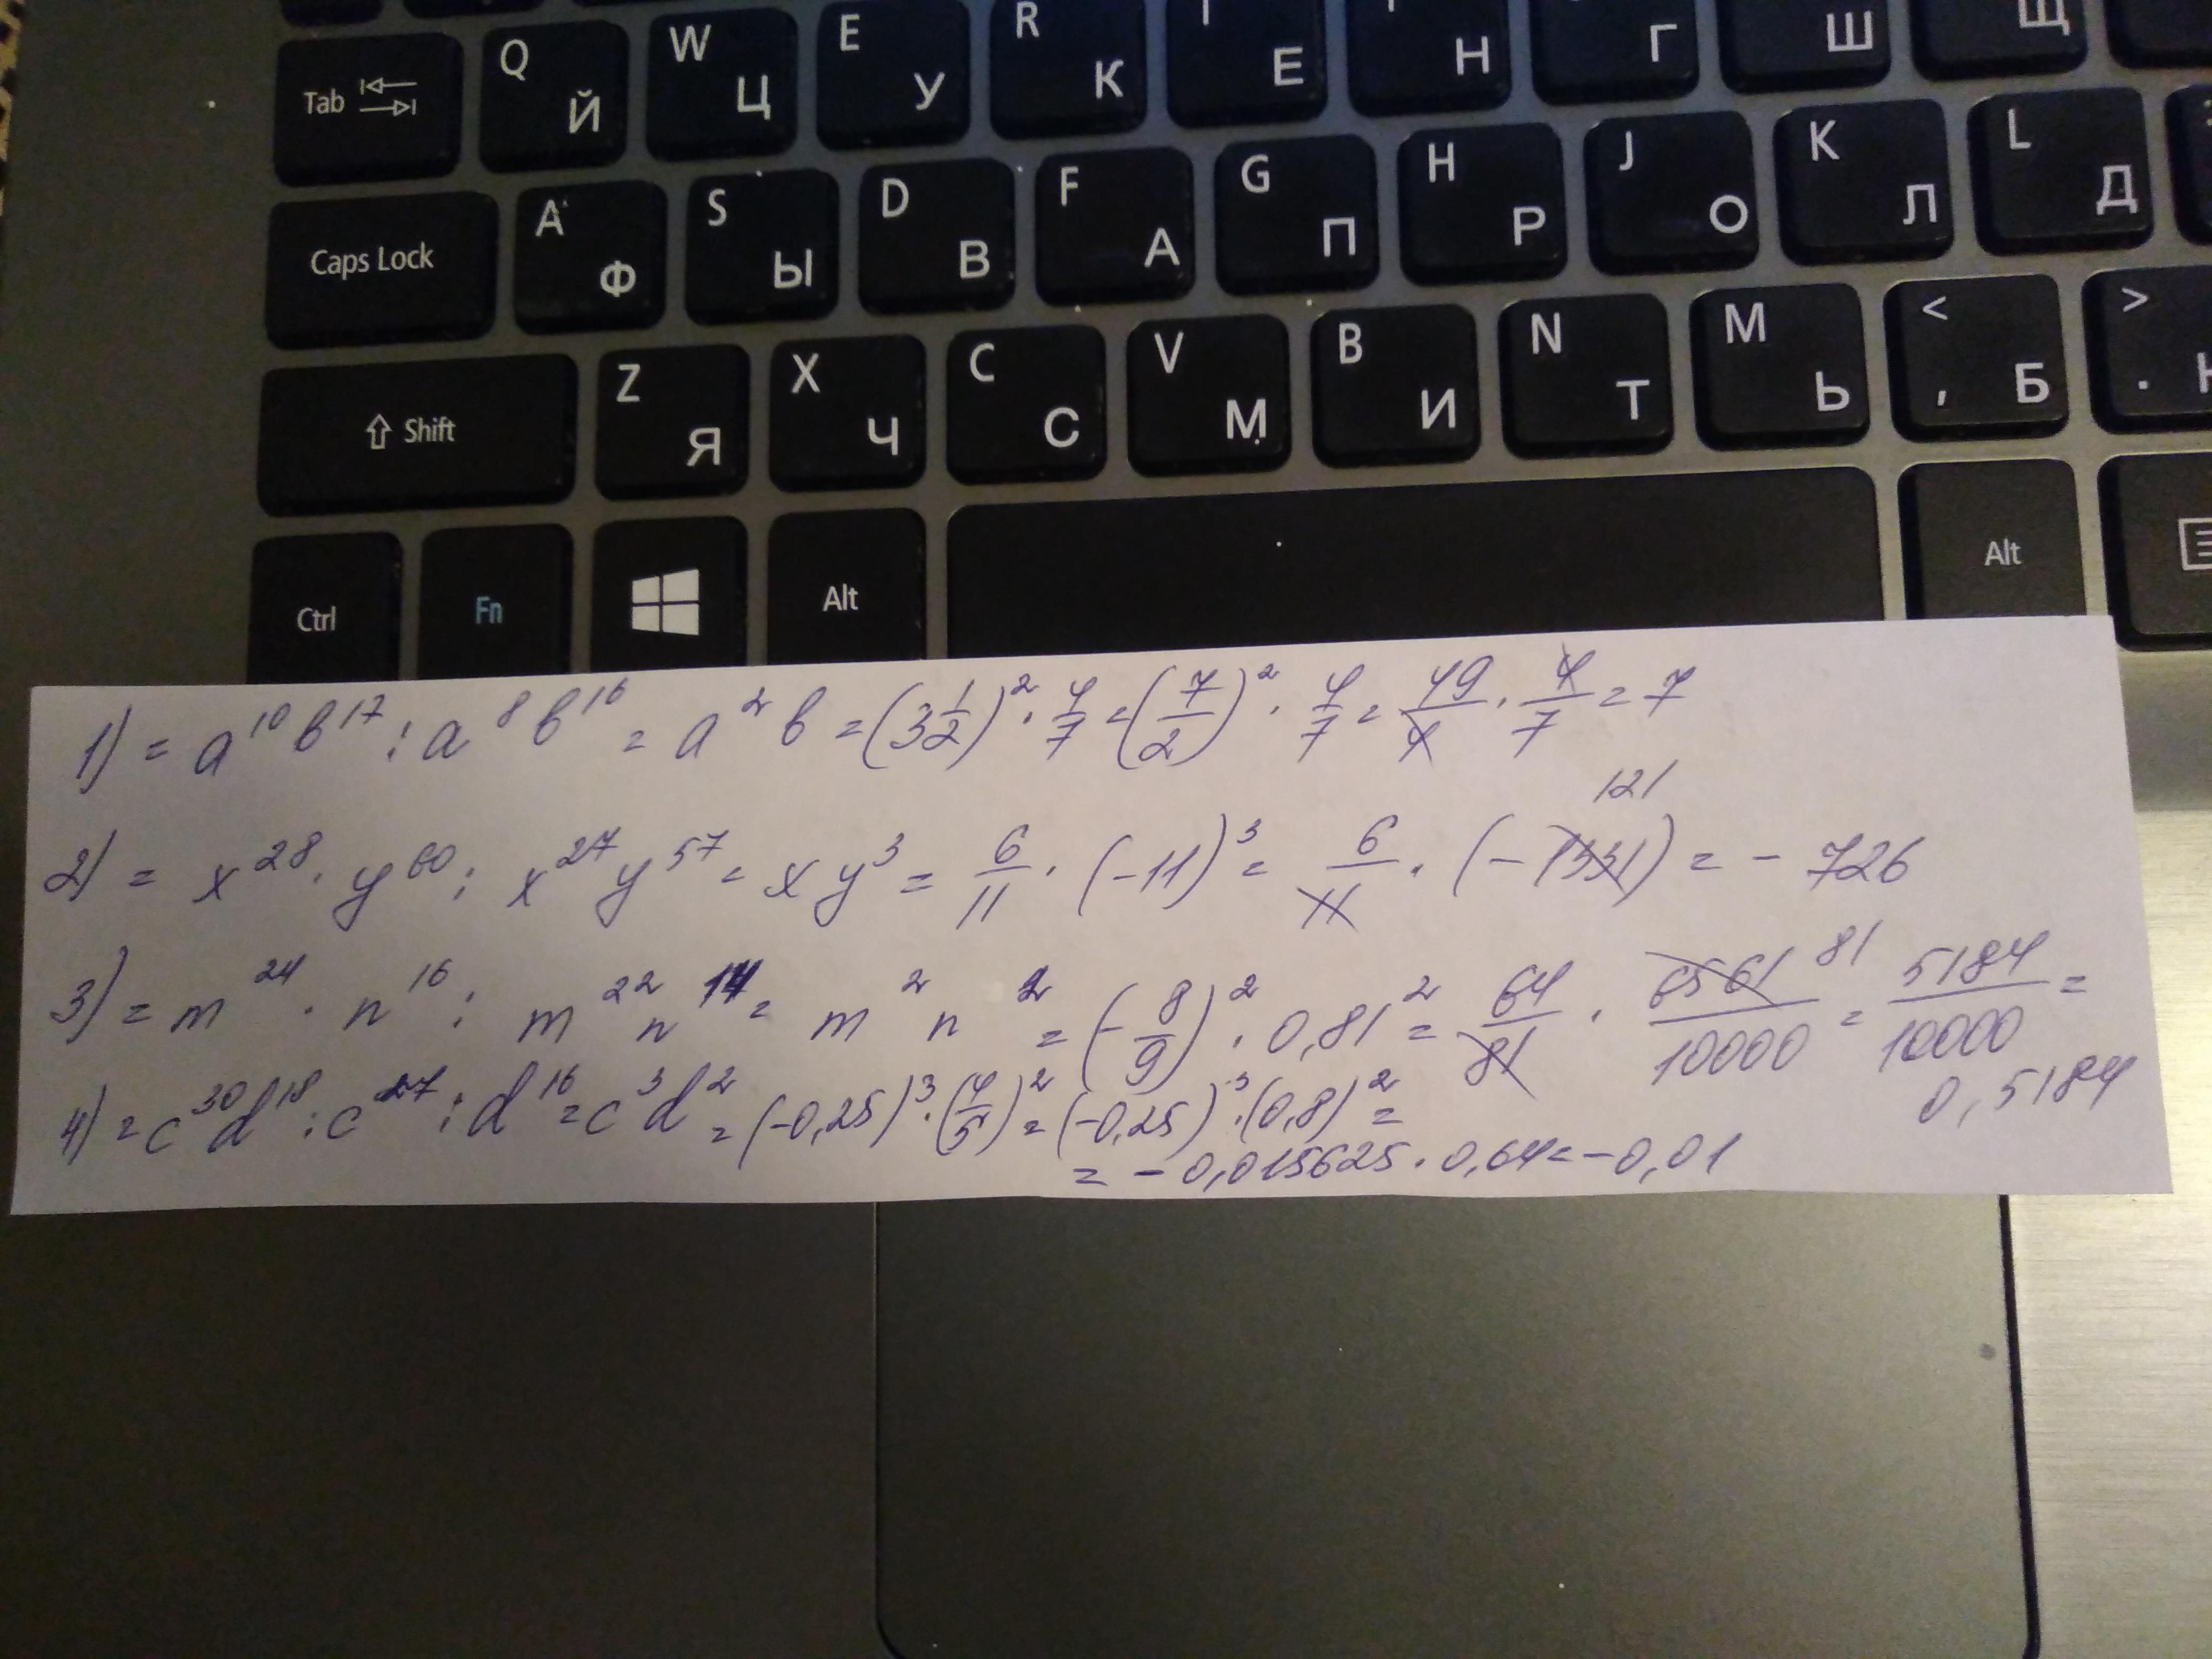 Tab Q Й W Ц E У R К Е Н Г Ш Щ
Caps Lock A Ф S Ы D В F А G П H Р J О K Л L Д
Shift Z Я X Ч C С V М B И N Т M Ь < , Б > .
Ctrl Fn Alt Alt
1) = a^10 b^17 : a^8 b^16 = a^2 b = (3 1/2)^2 · 4/7 = (7/2)^2 · 4/7 = 49/4 · 4/7 = 7
121
2) = x^28 · y^60 : x^27 y^57 = x y^3 = 6/11 · (-11)^3 = 6/11 · (-1331) = - 726
3) = m^24 · n^16 : m^22 n^14 = m^2 n^2 = (-8/9)^2 · 0,81^2 = 64/81 · 6561/10000 81 = 5184/10000 =
0,5184
4) = c^30 d^18 : c^27 : d^16 = c^3 d^2 = (-0,25)^3 · (4/5)^2 = (-0,25)^3 · (0,8)^2 =
= - 0,015625 · 0,64 = - 0,01